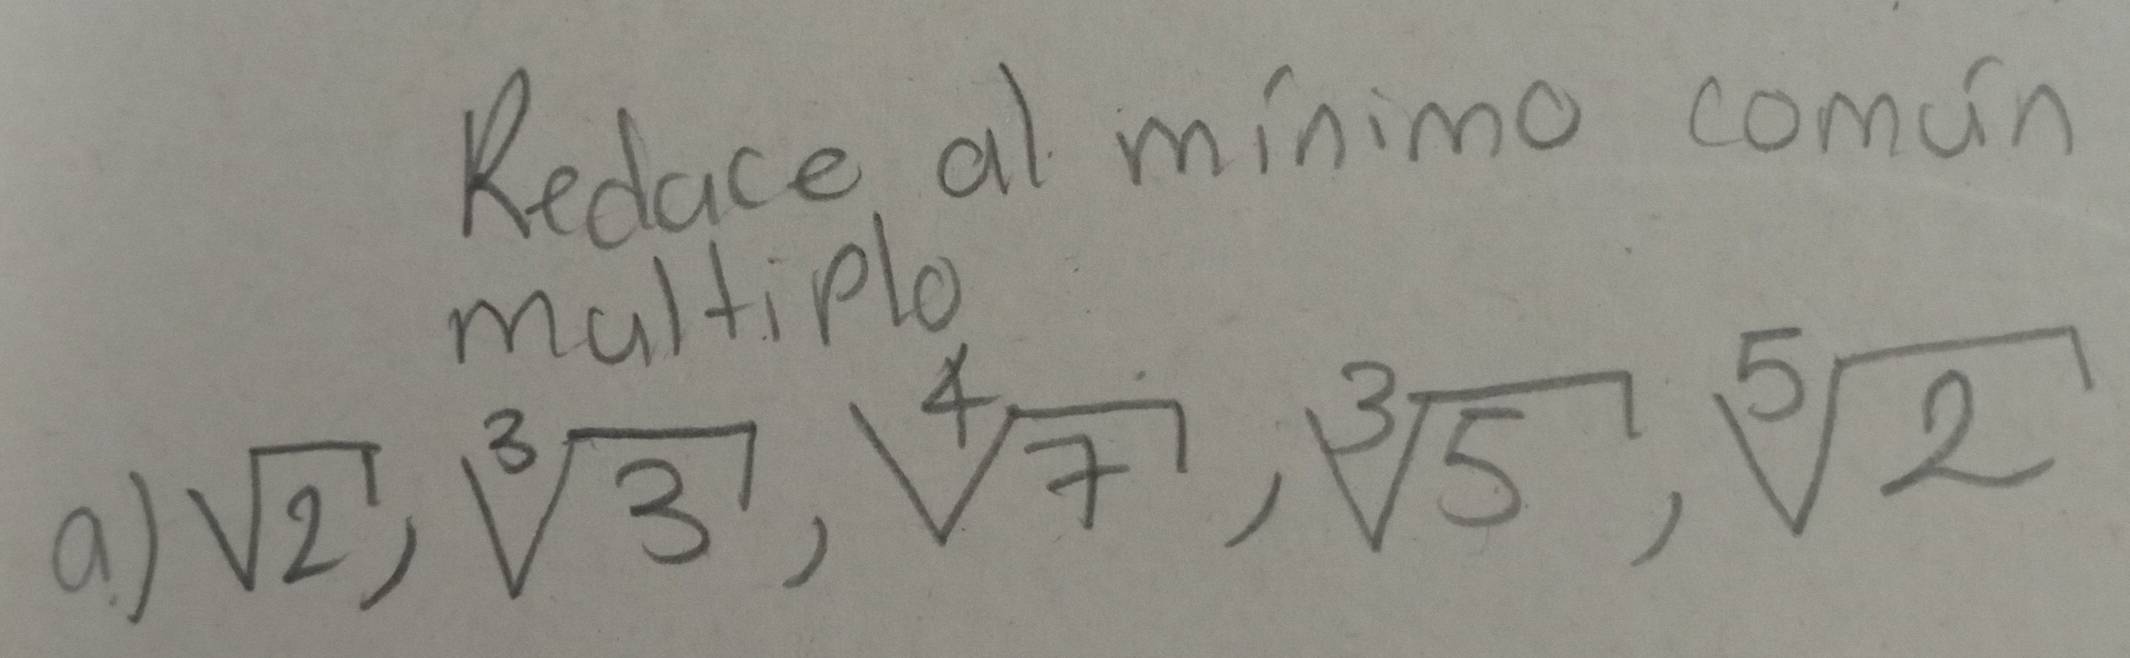 Reduce al mínimo común
multiplo
a) √2, ∛3, ∜7, ∛5, ⁵√2